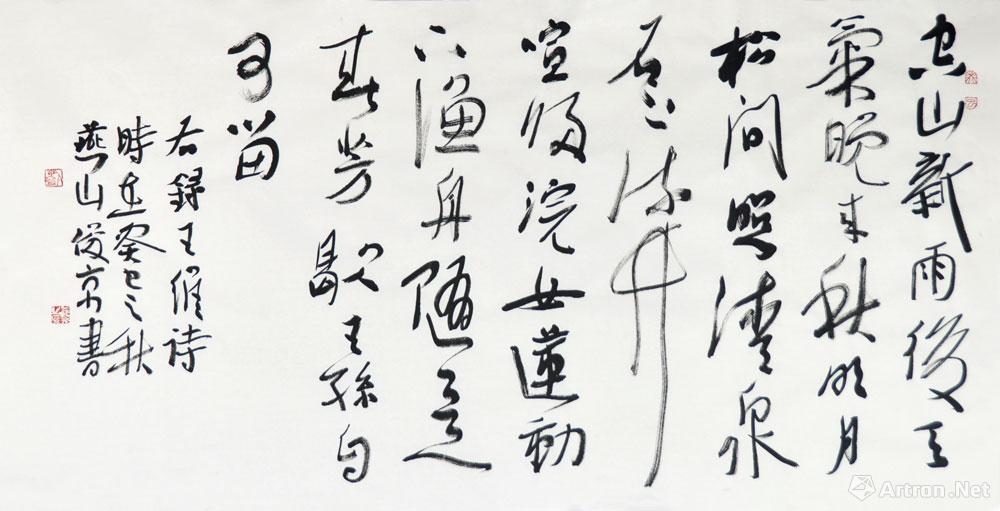 空山新雨後天
氣晚来秋明月
松间照清泉
石上流竹
喧歸浣女蓮動
下漁舟随意
春芳歇王孫自
可留
右録王維詩
時在癸巳之秋
燕山俊京書
Artron.Net